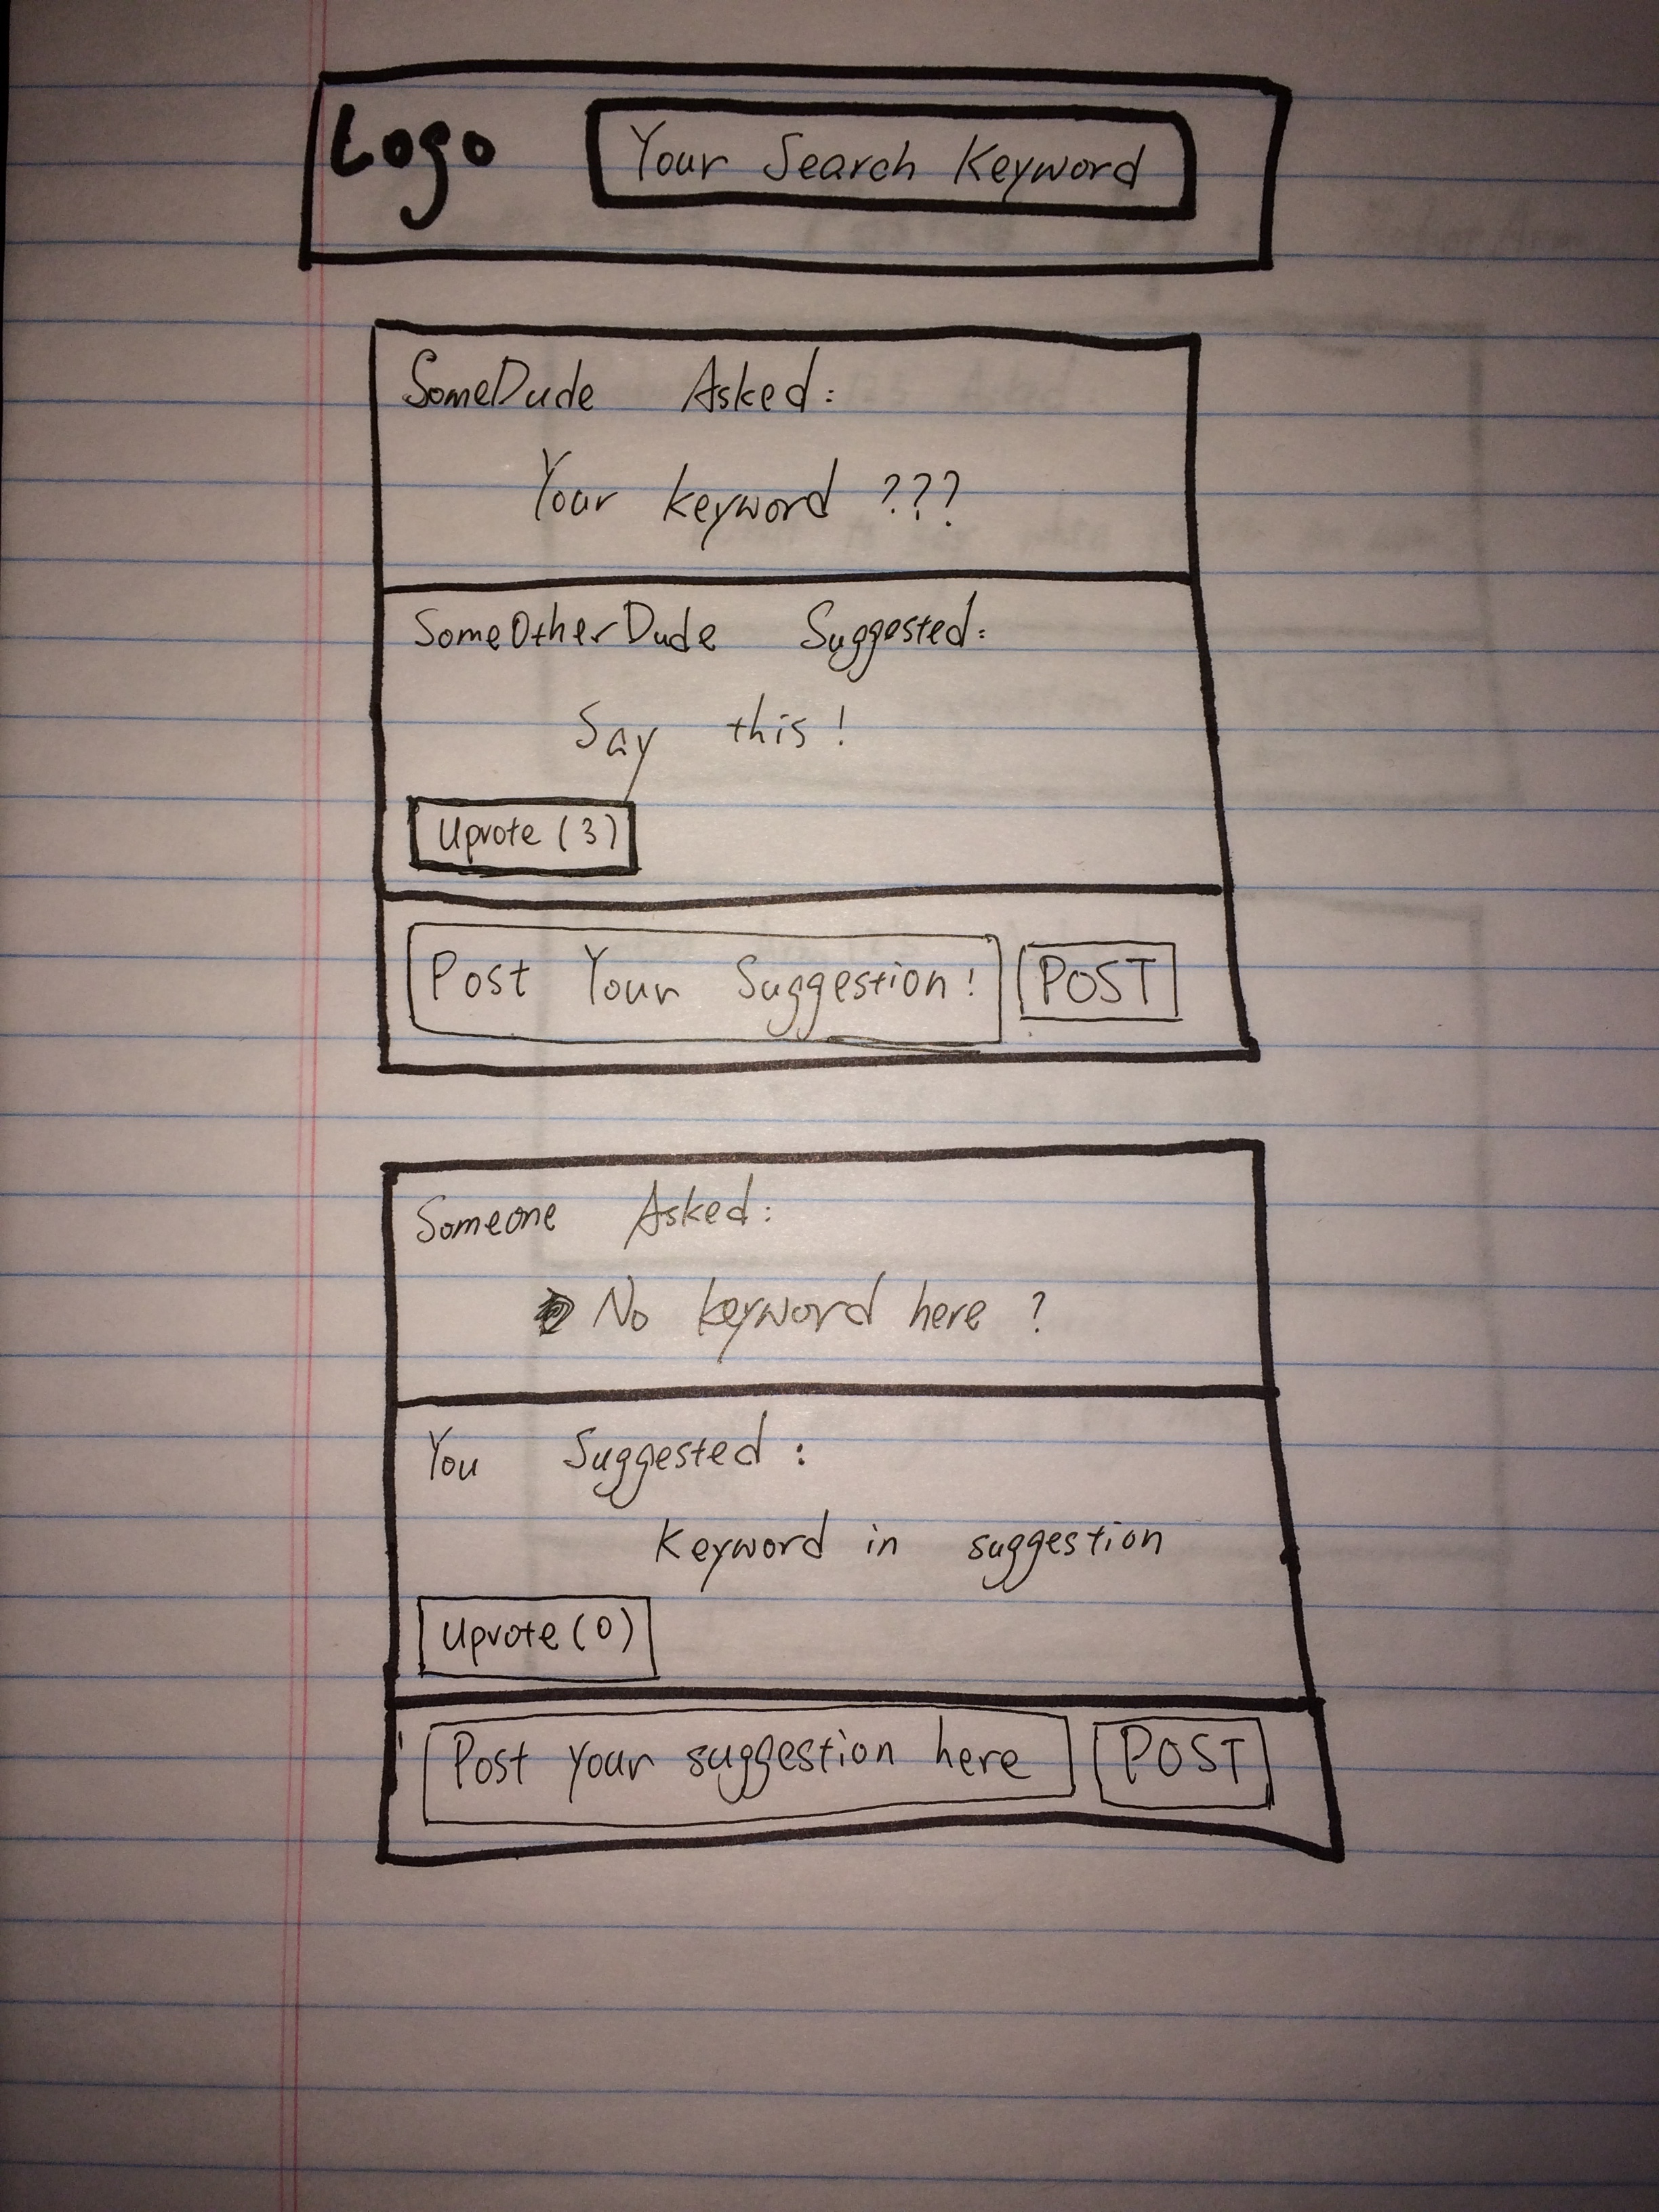 Logo
Your Search Keyword
SomeDude Asked:
Your keyword ???
SomeOtherDude Suggested:
Say this!
Upvote (3)
Post Your Suggestion!
POST
Someone Asked:
No keyword here ?
You Suggested:
Keyword in suggestion
Upvote (0)
Post your suggestion here
POST